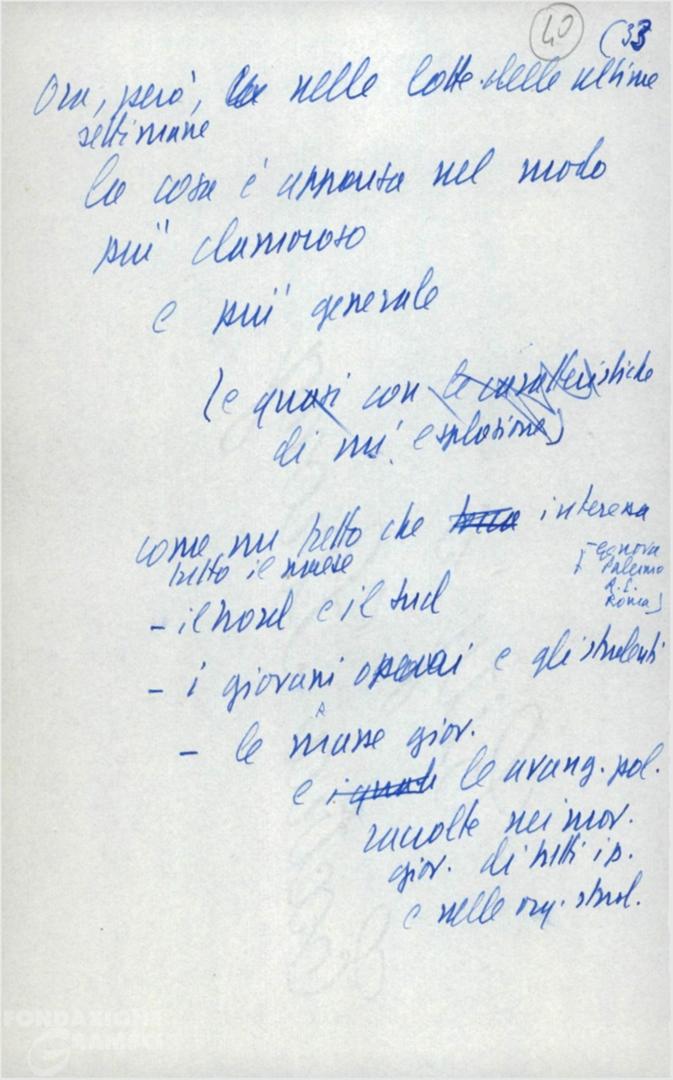 40 (33
Ora, però, la nelle lotte delle ultime
settimane
la cosa è apparsa nel modo
più clamoroso
e più generale
(e quasi con le caratteristiche
di un' esplosione)
come un tutto che interessa
tutto il paese
- il nord e il sud
(- Genova
Palermo
R.E.
Roma)
- i giovani operai e gli studenti
- le masse giov.
e i quadri le avang. pol.
raccolte nei mov.
giov. di tutti i p.
e nelle org. stud.
FONDAZIONE
GRAMSCI